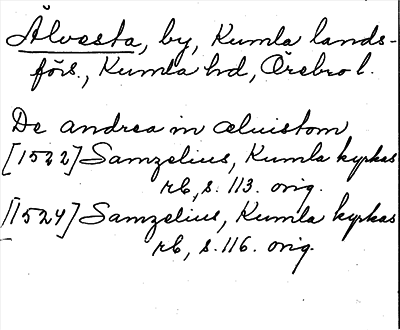 Älvesta, by, Kumla lands-
förs., Kumla hd, Örebro l.
De andrea in æluistom
[1522] Samzelius, Kumla kyrkas
rb, s. 113. orig.
[1524] Samzelius, Kumla kyrkas
rb, s. 116. orig.